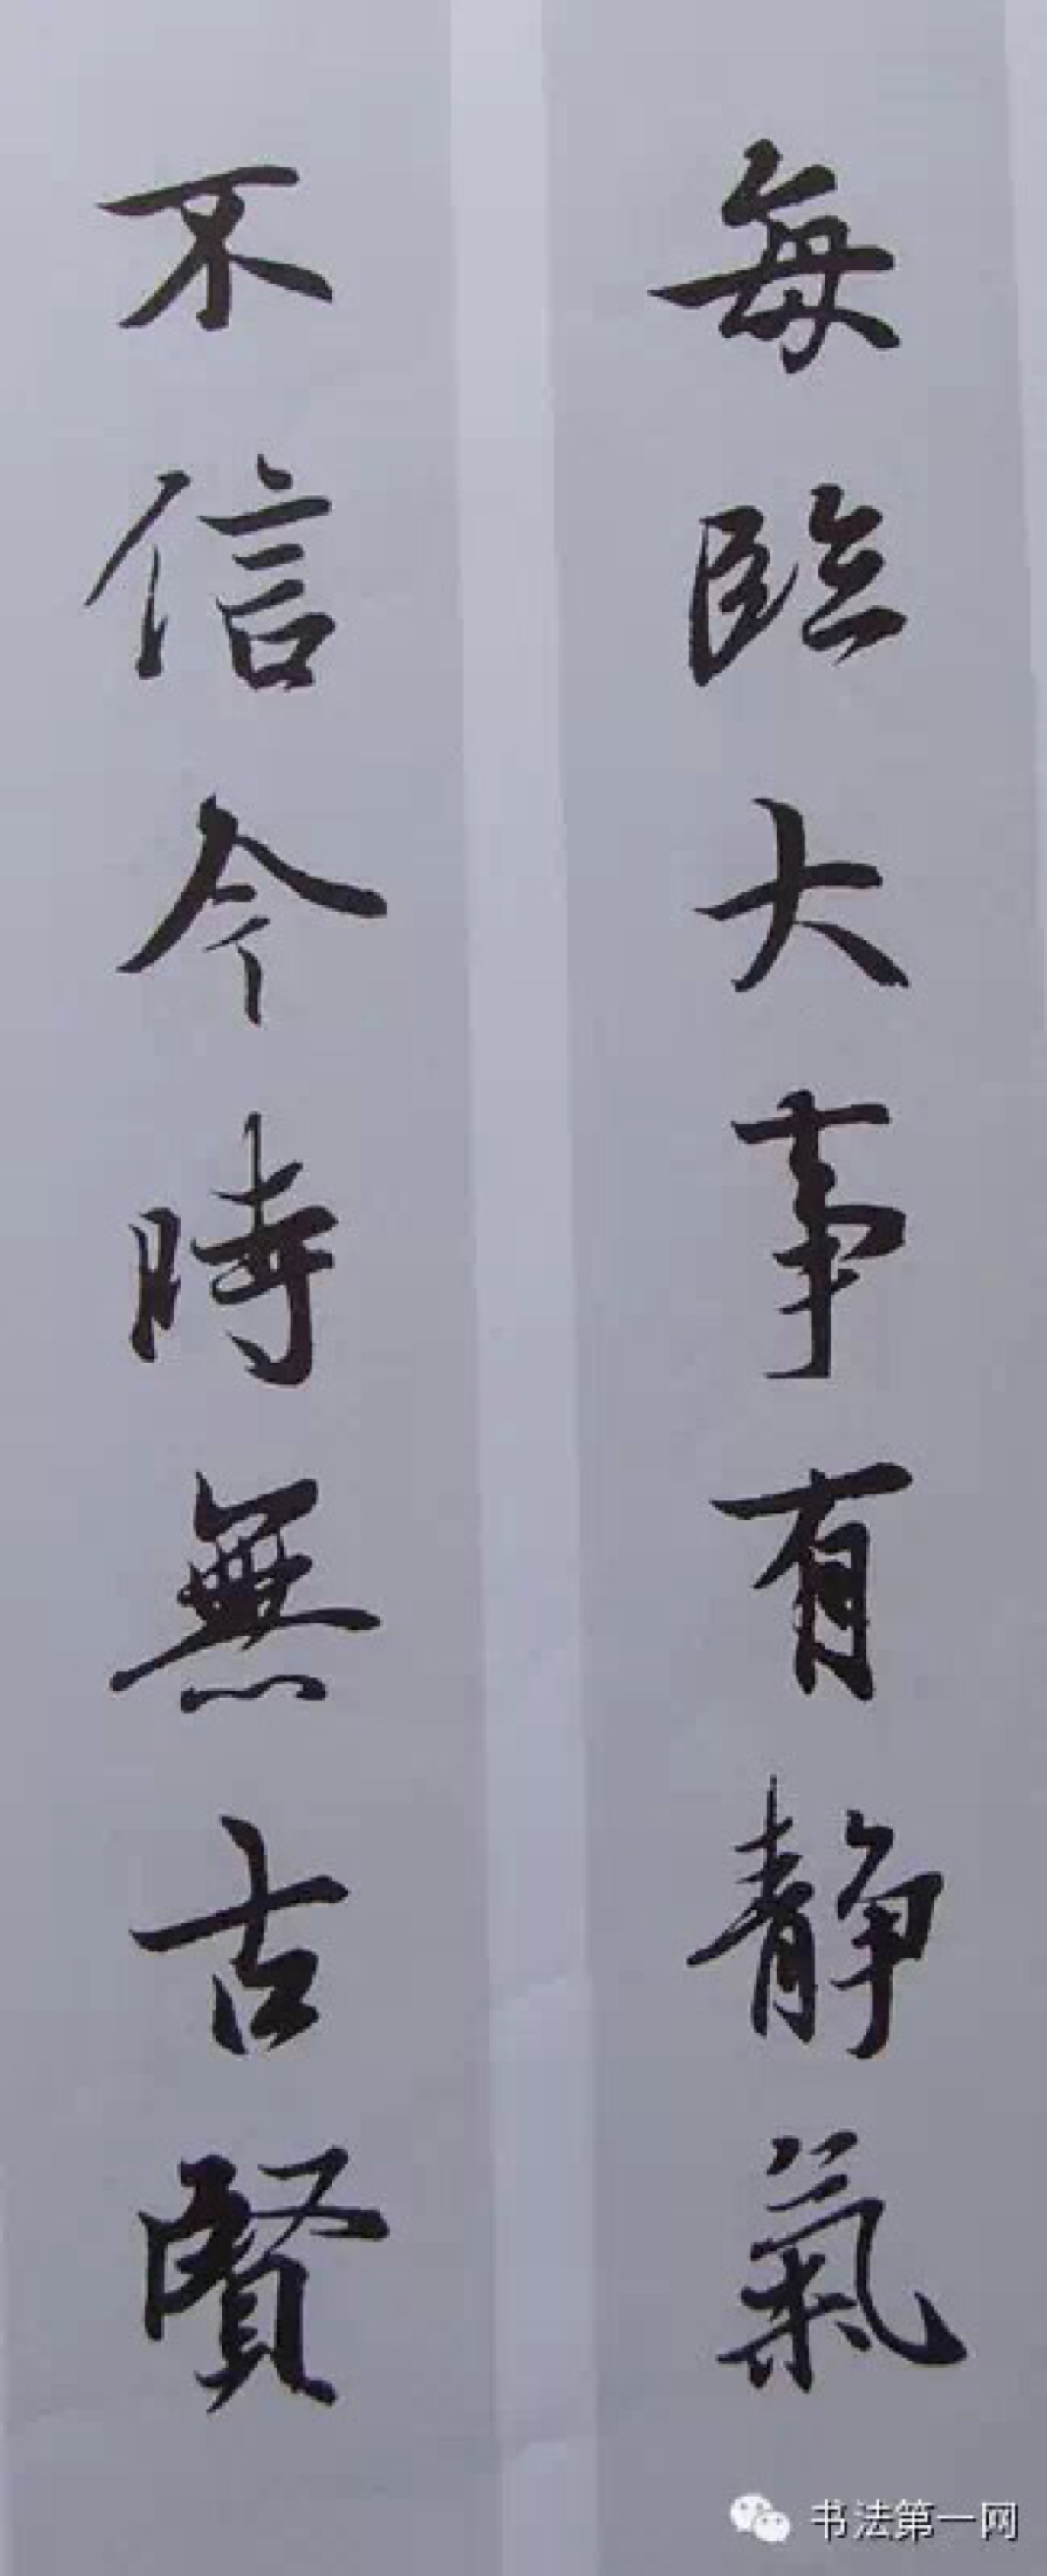 每臨大事有静氣
不信今時無古賢
书法第一网